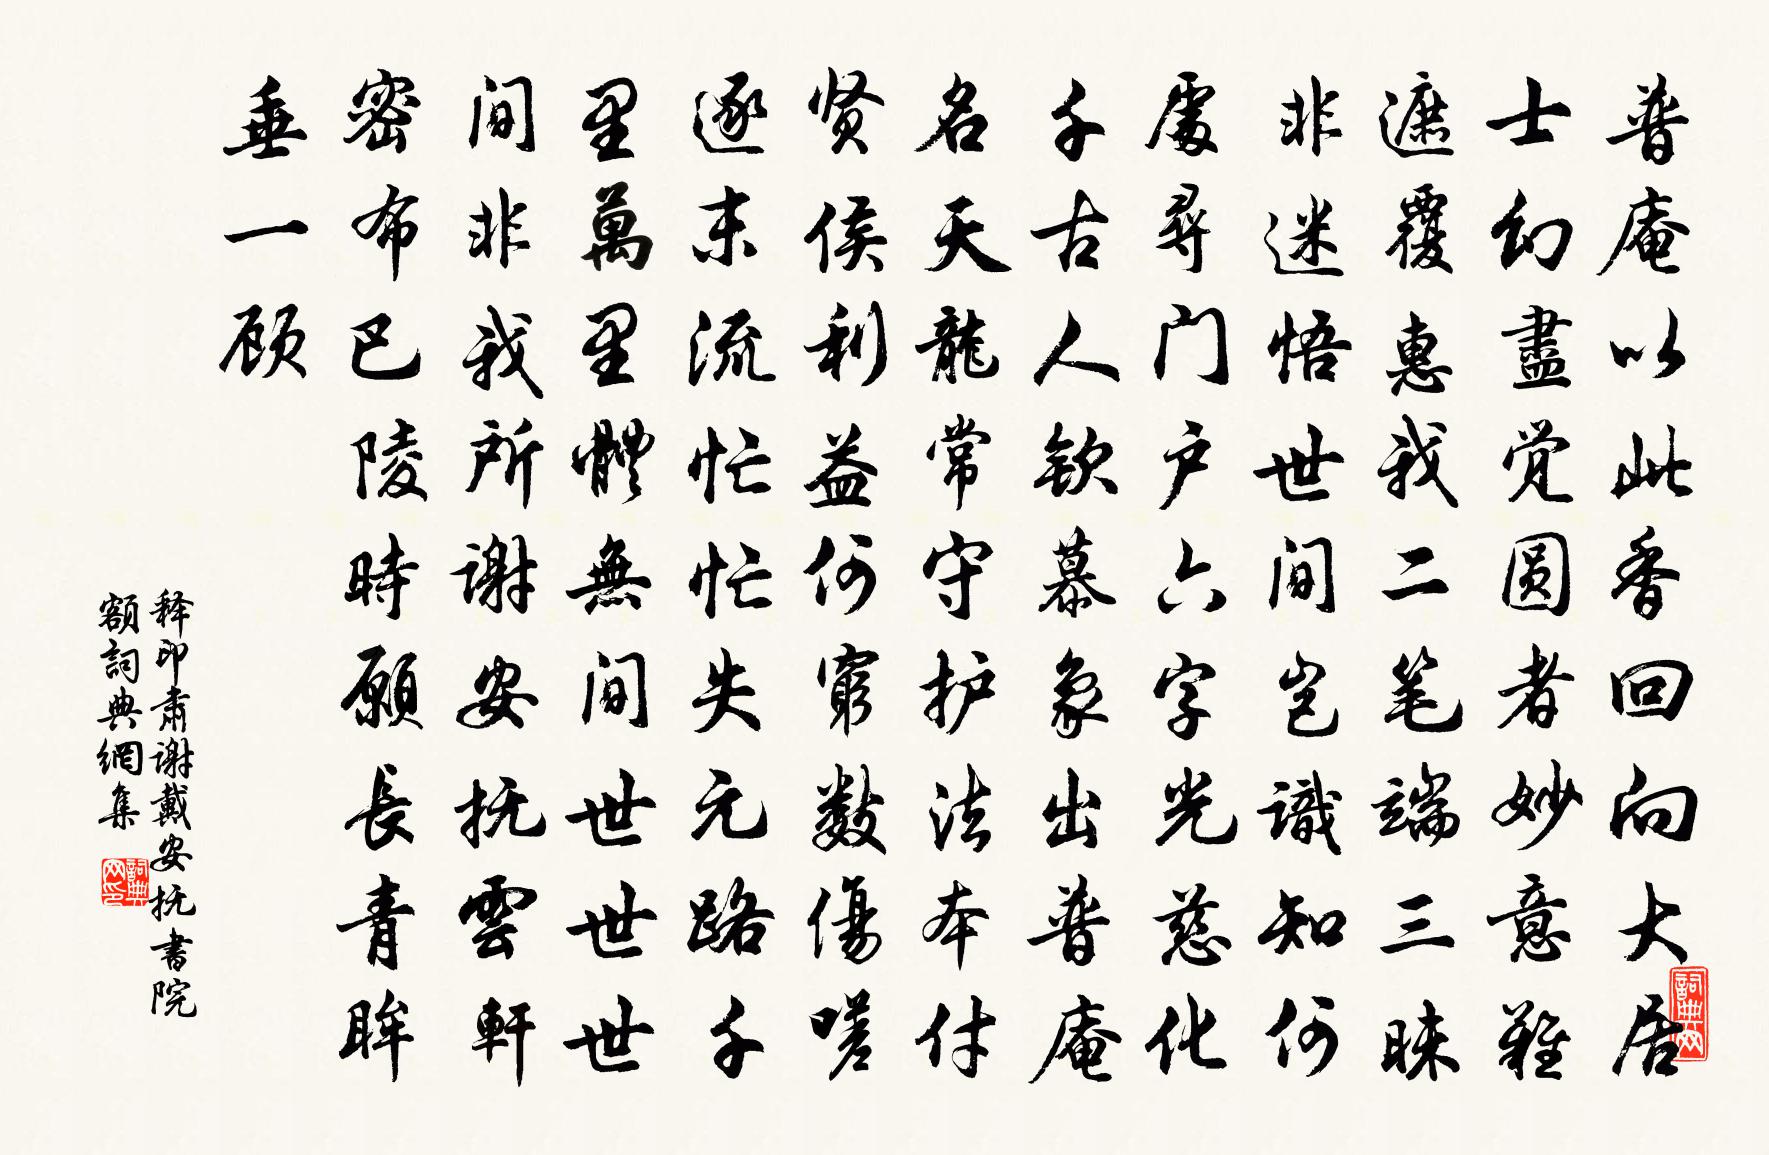 普庵以此香回向大居
士幻盡觉圆者妙意難
遮覆惠我二笔端三昧
非迷悟世间岂識知何
處尋门户六字光慈化
千古人钦慕象出普庵
名天龍常守护法本付
贤侯利益何窮数傷嗟
逐末流忙忙失元路千
里萬里體無间世世世
间非我所谢安抚雲軒
密布巴陵時願長青眸
垂一顾
释印肃谢戴安抚書院
額詞典網集
詞典网
詞典网印